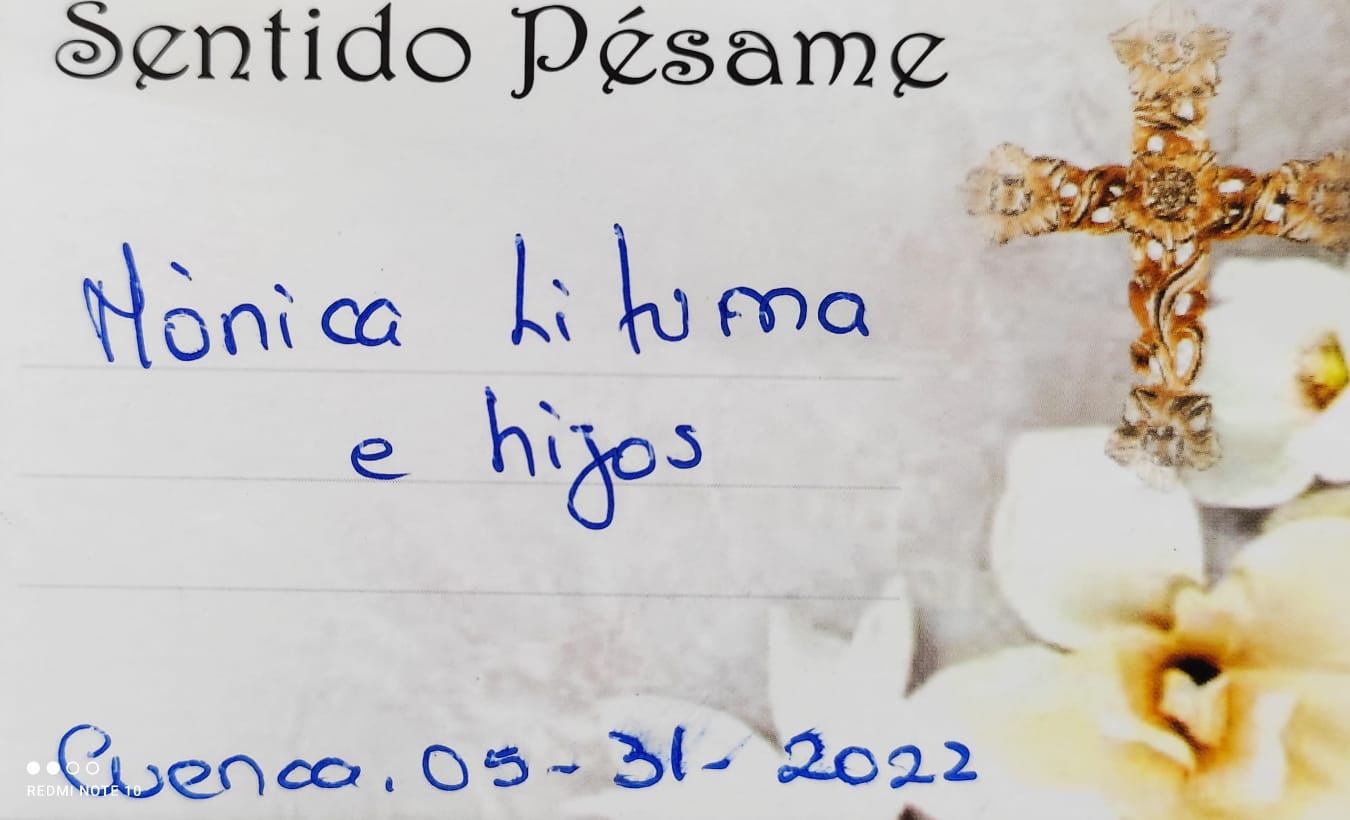 Sentido Pésame
Mònica Lituma
e hijos
Cuenca. 05-31-2022
REDMI NOTE 10